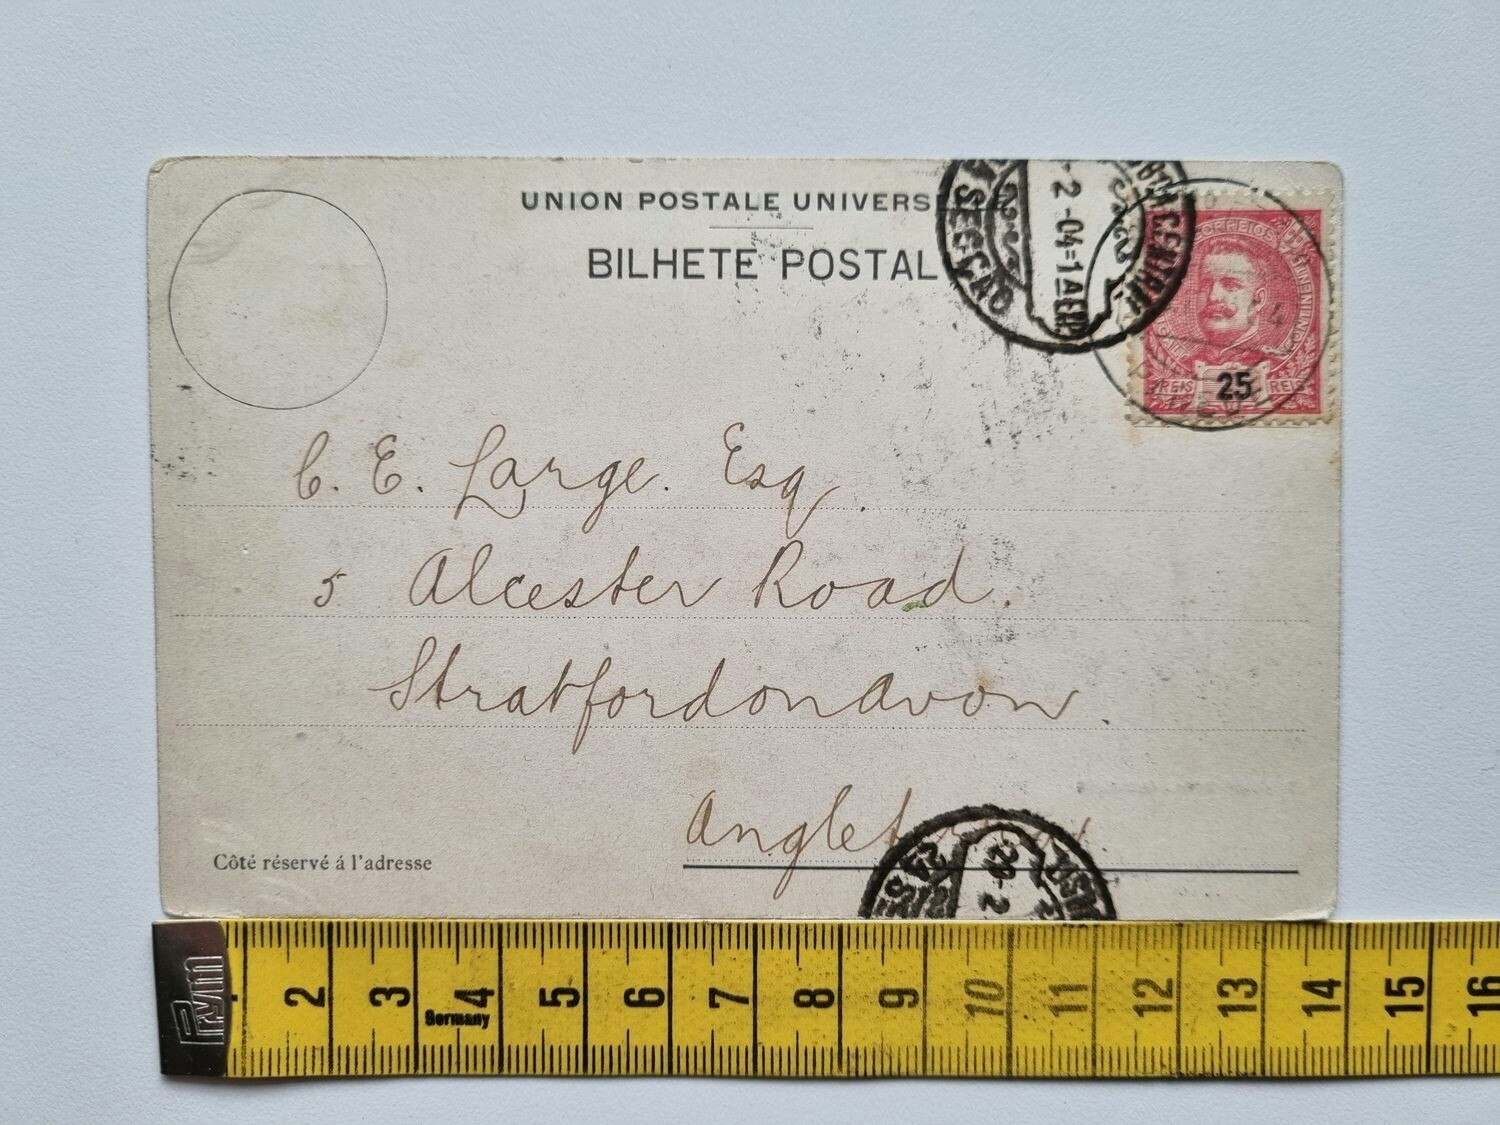 UNION POSTALE UNIVERS
BILHETE POSTAL
SECÇÃO
2-04=1A
CORREIOS
CONTINENTE
REIS 25 REIS
C. E. Large. Esq.
5 Alcester Road.
Stratfordonavon.
Angleterre.
Côté réservé á l'adresse
29-2
Prym
2 3 4 5 6 7 8 9 10 11 12 13 14 15 16
Germany